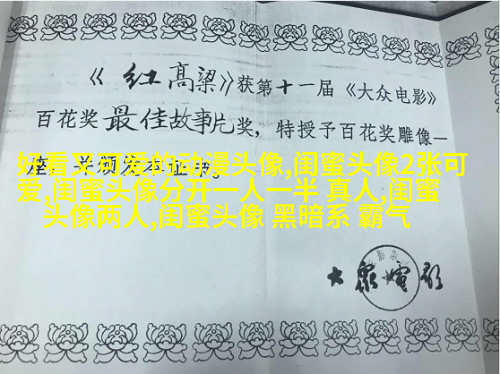 《红高粱》获第十一届《大众电影》
百花奖最佳故事片奖，特授予百花奖雕像一
座，并颁发本证书。
好看又可爱的动漫头像,闺蜜头像2张可
爱,闺蜜头像分开一人一半 真人,闺蜜
头像两人,闺蜜头像 黑暗系 霸气
大众电影